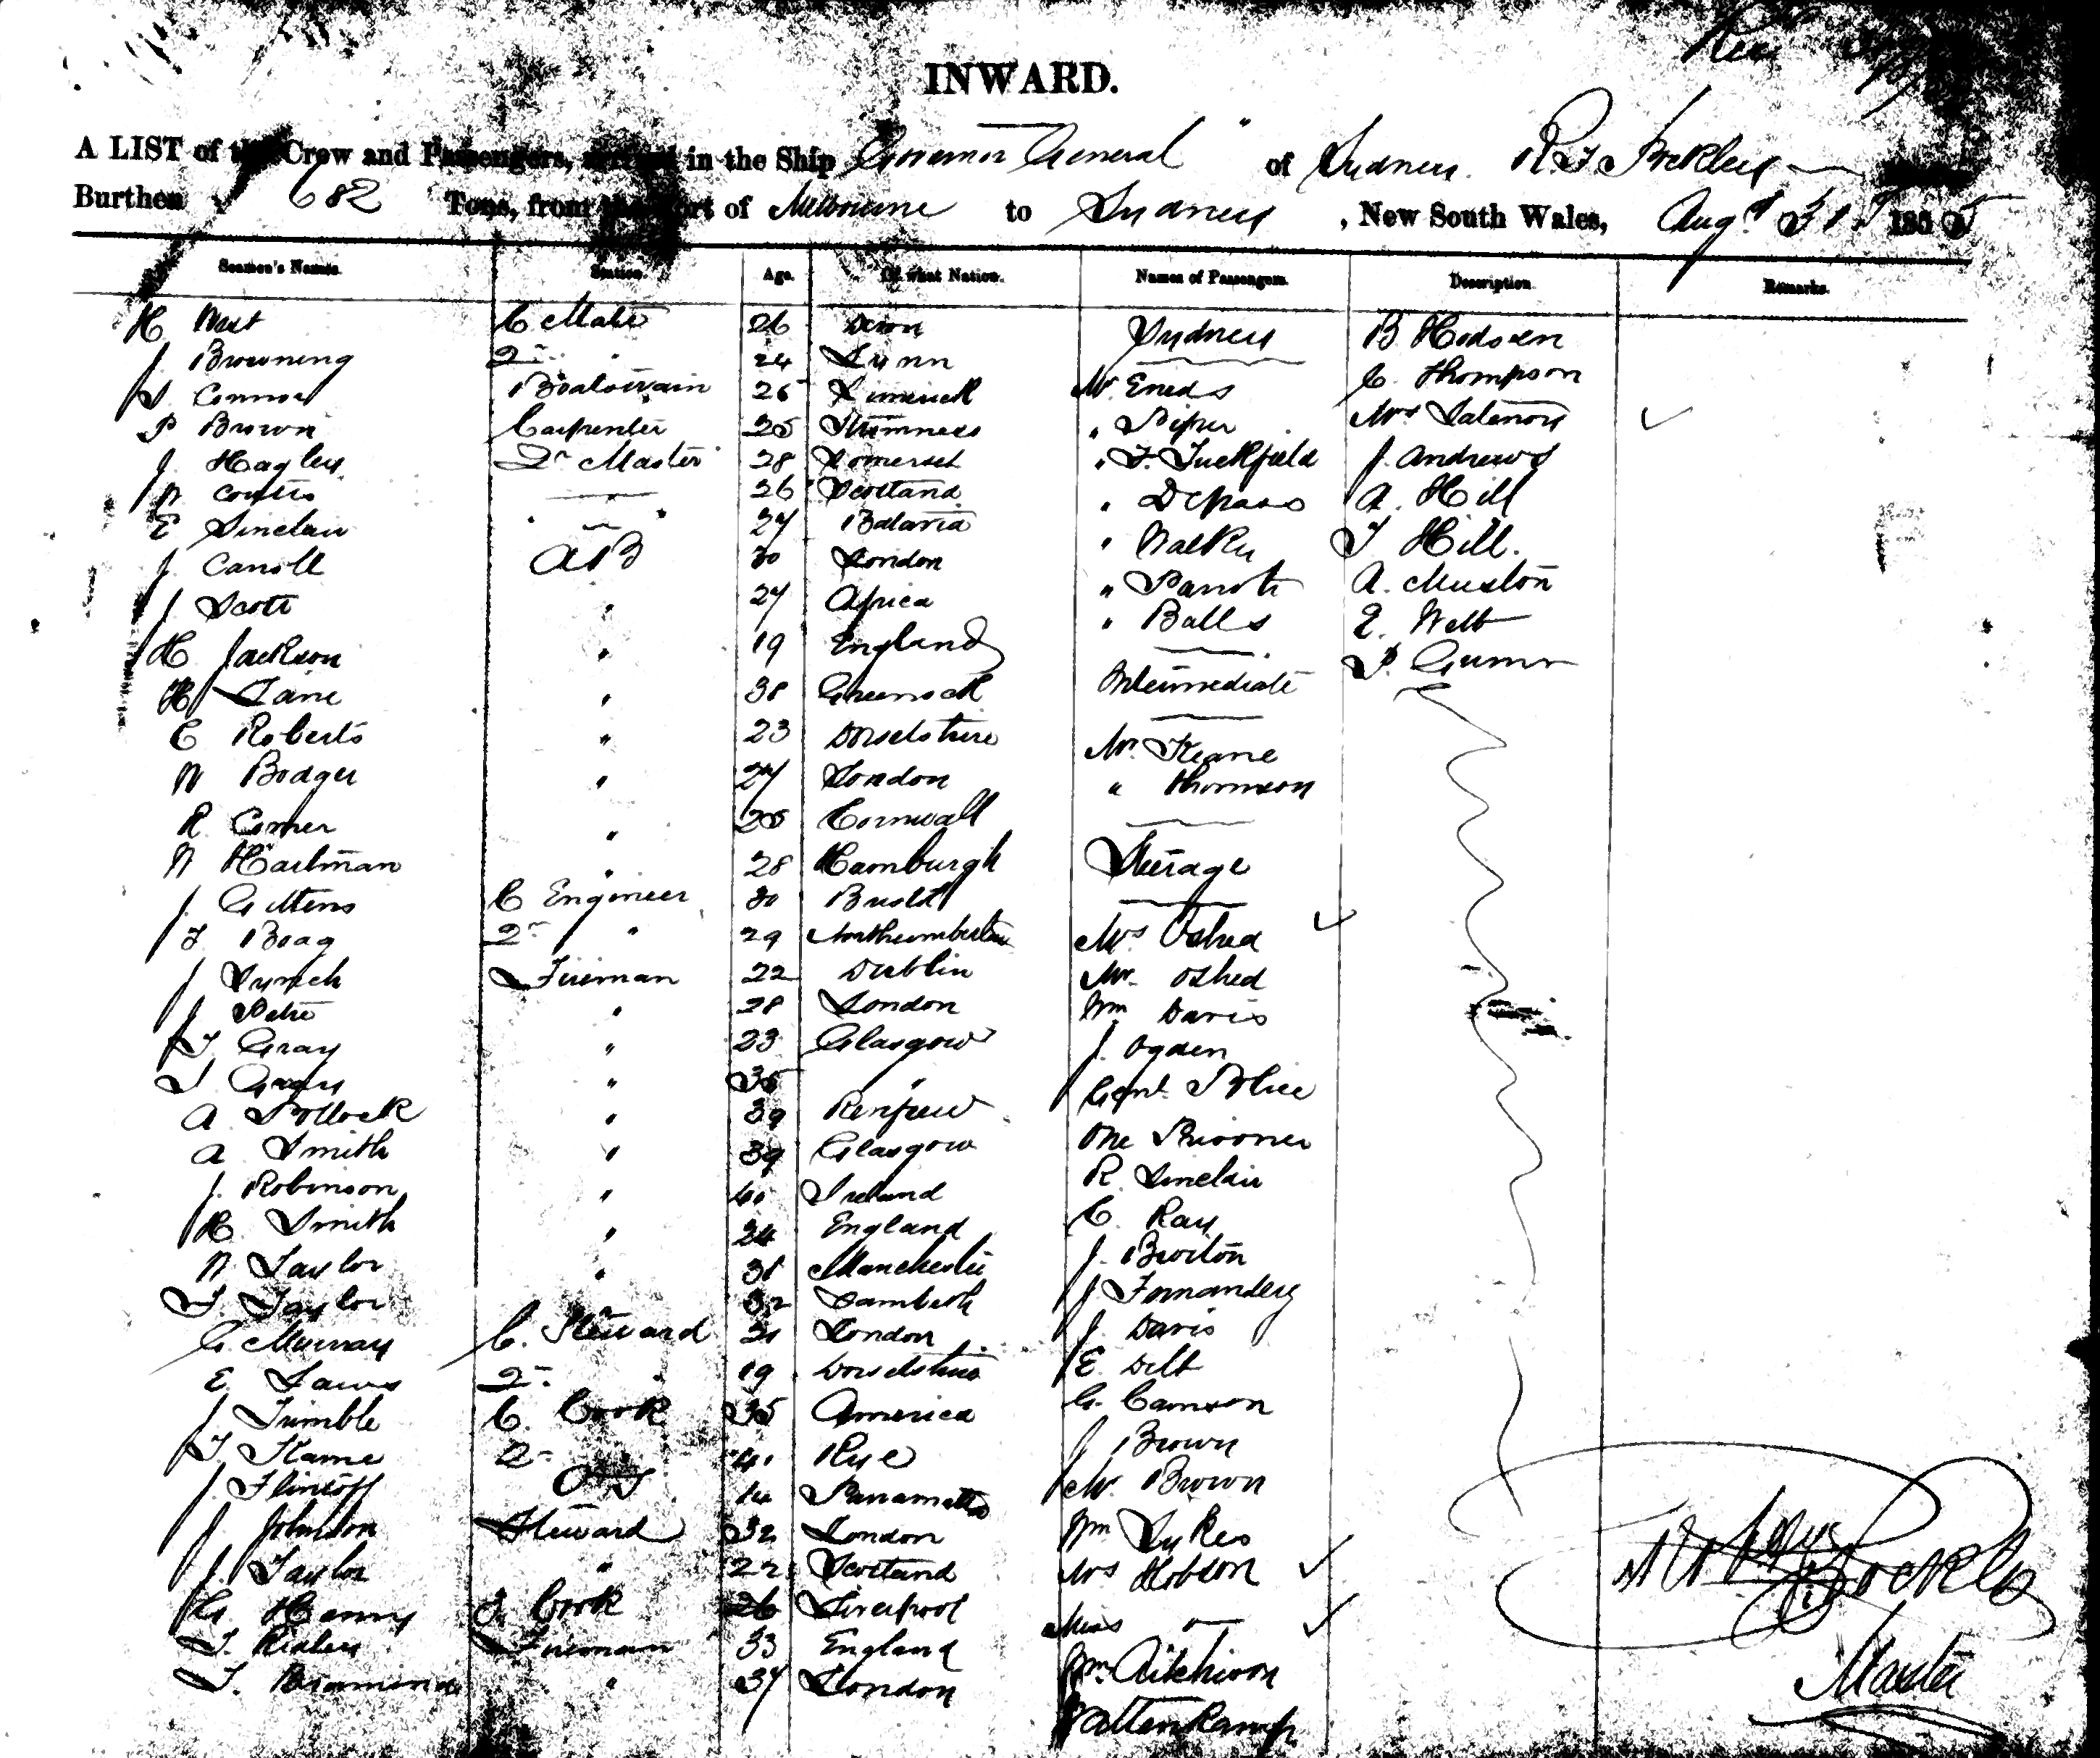 INWARD.
A LIST of the Crew and Passengers, in the Ship Governor General of Sydney. R. F. Pockley
Burthen 682 Tons, from the Port of Melbourne to Sydney, New South Wales, Augt 31st 1855
Seamen's Names. Station. Age. Of what Nation. Names of Passengers. Description. Remarks.
H West C Mate 26 Devon Sydney B Hodson
J. Browning 2nd " 24 Lynn C. Thompson
Connor Boatswain 26 Limerick Mr. Eneds Mrs
P Brown Carpenter 25 Stromness " Piper J. Andrews
J. Hagley Qr Master 28 Somerset " F. Tuckfield A. Hill
W Coutts 26 Scotland " Depass T Hill.
E Sinclair " " 27 Batavia " Walker A. Muston
J. Caroll AB 30 London " Parrott E. Webb
J Scott " 27 Africa " Balls
H Jackson " 19 England Intermediate
H Lane " 38 Greenock
E Roberts " 23 Dorsetshire Mr. Keane
W Bodger " 27 London " Thomson
R Comer " 25 Cornwall
W Hartman " 28 Hamburgh Steerage
J. Gittens C Engineer 30 Bristol
T Boag 2nd " 29 Northumberland Mrs Oshed
J Lynch Fireman 22 Dublin Mr Oshed
J Petrie " 28 London Wm Davis
T Gray " 23 Glasgow J. Ogden
" 35 " Police
A Pollock " 39 Renfrew One Prisoner
A Smith " 39 Glasgow R. Sinclair
J. Robinson " 40 Ireland C. Ray
H. Smith " 24 England J. Burton
W Taylor " 31 Manchester J Fernandez
T. Taylor 32 Lambeth J. Davis
G. Murray C. Steward 31 London E. Delt
E Laws 2nd " 19 Dorsetshire G. Camson
J Trimble C. Cook 35 America J Brown
T Kame 2nd 41 Rye W. Brown
J. Flintoff OS 14 Parramatta Wm Sykes
J. Johnson Steward 32 London Mrs Hobson
J. Taylor " 22 Scotland Miss "
G. Henry J. Cook 26 Liverpool Wm Aitchison
T. Ridley Fireman 33 England Wattenkamp
T. " 37 London
Pockley
Master